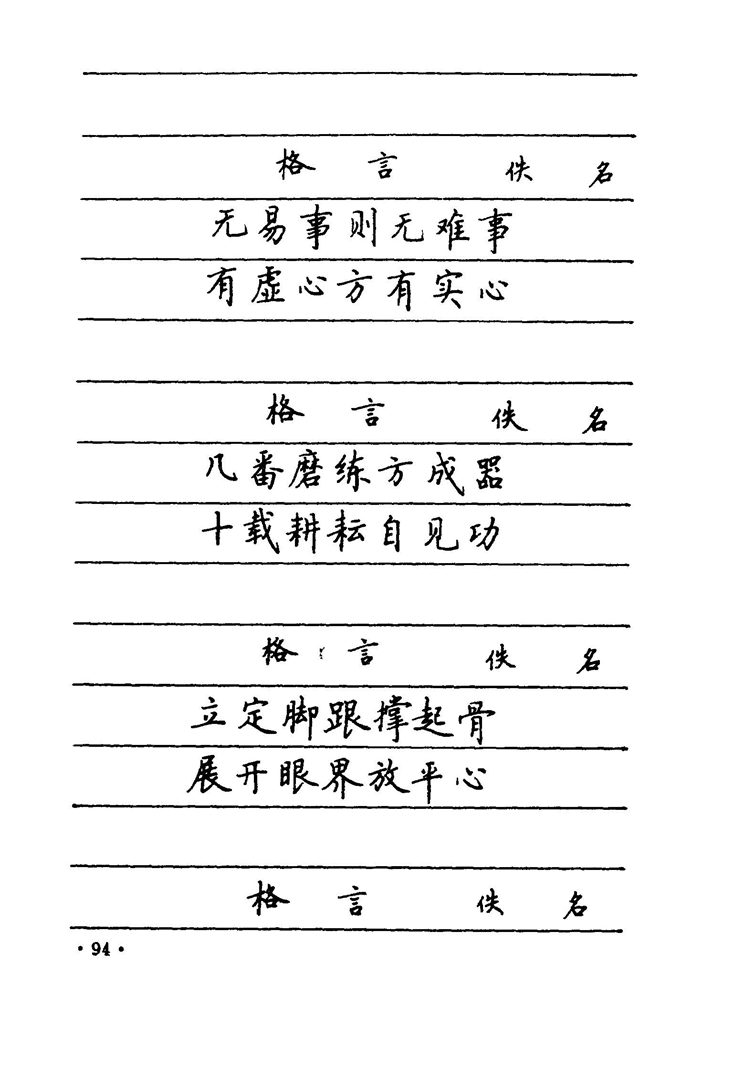 格言 佚名
无易事则无难事
有虚心方有实心
格言 佚名
几番磨练方成器
十载耕耘自见功
格言 佚名
立定脚跟撑起骨
展开眼界放平心
格言 佚名
·94·